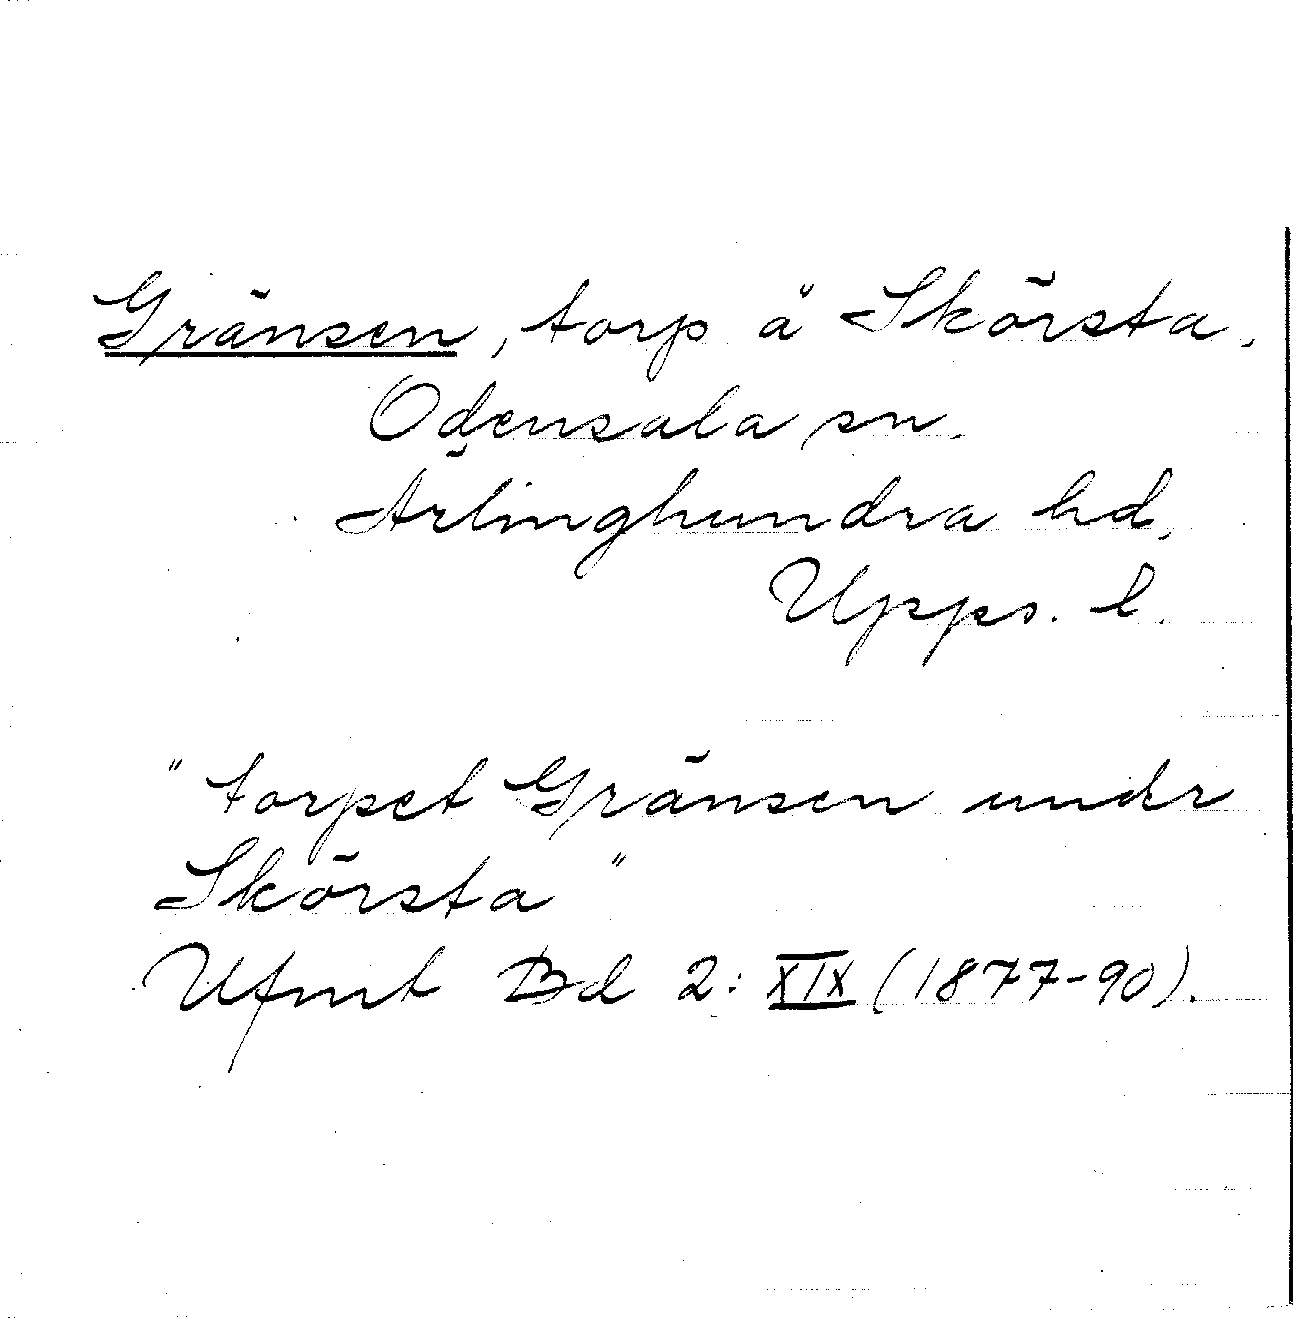 Gränsen, torp å Skörsta,
Odensala sn.
Ärlinghundra hd,
Upps. l.
"torpet Gränsen undr
Skörsta"
Ufmt Bd 2: XIX (1877-90).